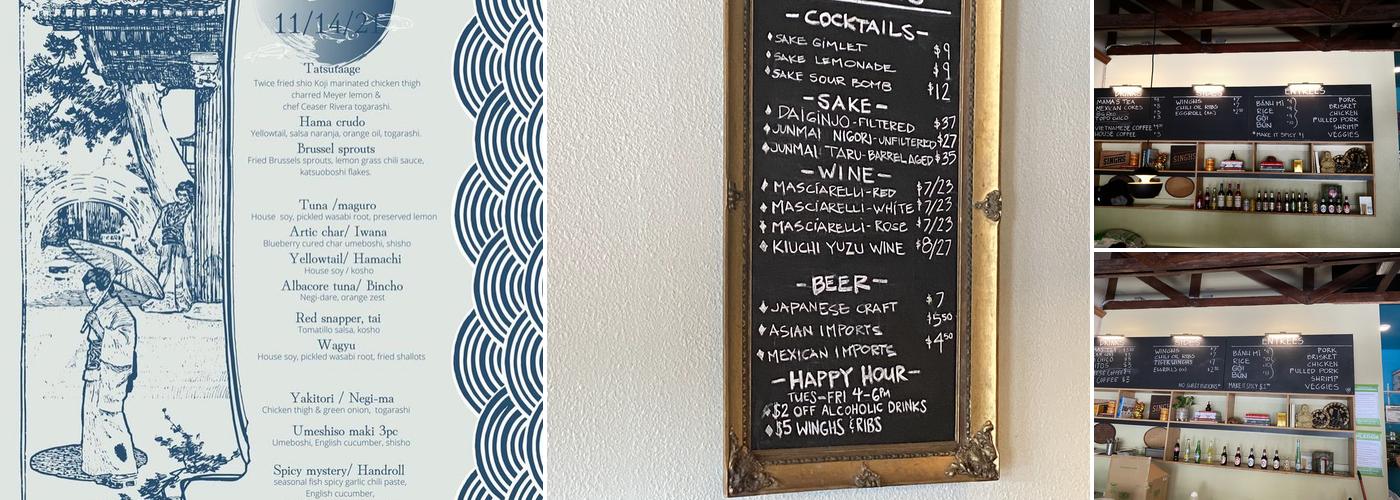 11/14/21
Tatsutaage
Twice fried shio Koji marinated chicken thigh
charred Meyer lemon &
chef Ceaser Rivera togarashi.
Hama crudo
Yellowtail, salsa naranja, orange oil, togarashi.
Brussel sprouts
Fried Brussels sprouts, lemon grass chili sauce,
katsuoboshi flakes.
Tuna /maguro
House soy, pickled wasabi root, preserved lemon
Artic char/ Iwana
Blueberry cured char umeboshi, shisho
Yellowtail/ Hamachi
House soy / kosho
Albacore tuna/ Bincho
Negi-dare, orange zest
Red snapper, tai
Tomatillo salsa, kosho
Wagyu
House soy, pickled wasabi root, fried shallots
Yakitori / Negi-ma
Chicken thigh & green onion, togarashi
Umeshiso maki 3pc
Umeboshi, English cucumber, shisho
Spicy mystery/ Handroll
seasonal fish spicy garlic chili paste,
English cucumber,
-COCKTAILS-
SAKE GIMLET $9
SAKE LEMONADE $9
SAKE SOUR BOMB $12
-SAKE-
DAIGINJO-FILTERED $37
JUNMAI NIGORI-UNFILTERED $27
JUNMAI TARU-BARREL AGED $35
-WINE-
MASCIARELLI-RED $7/23
MASCIARELLI-WHITE $7/23
MASCIARELLI-ROSE $7/23
KIUCHI YUZU WINE $8/27
-BEER-
JAPANESE CRAFT $7
ASIAN IMPORTS $5.50
MEXICAN IMPORTS $4.50
-HAPPY HOUR-
TUES-FRI 4-6PM
$2 OFF ALCOHOLIC DRINKS
$5 WINGHS & RIBS
DRINKS
MAMA'S TEA
MEXICAN COKES
BIG RED
TOPO CHICO
VIETNAMESE COFFEE
HOUSE COFFEE
SIDES
WINGHS
CHILI OIL RIBS
EGGROLL (ea)
ENTREES
BÁNH MÌ
RICE
GỎI
BÚN
*MAKE IT SPICY $1
PORK
BRISKET
CHICKEN
PULLED PORK
SHRIMP
VEGGIES
SINGHS
COFFEE $3
SIDES
WINGHS
CHILI OIL RIBS
EGGROLLS
NO SUBSTITUTIONS
ENTREES
BÁNH MÌ
RICE
GỎI
BÚN
MAKE IT SPICY
PORK
BRISKET
CHICKEN
PULLED PORK
SHRIMP
VEGGIES